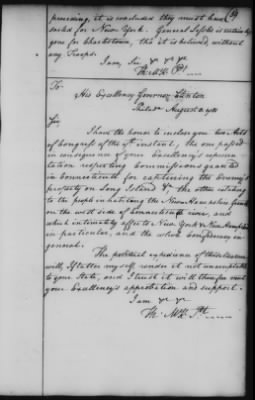 pearing, it is concluded they must have
sailed for New York. General Leslie is certainly
gone for Charlestown, tho' it is believed, without
any Troops.
I am, Sir, &c &c &c
Th: M:K. Pt.
To
His Excellency Governor Clinton
Philada August 8. 1781
Sir,
I have the honor to inclose you two Acts
of Congress of the 7th instant, the one passed
in consequence of your Excellency's represen-
tation respecting Commissions granted
in Connecticut for capturing the Enemy's
property on Long Island &c the other relating
to the people inhabiting the New Hampshire Grants
on the west side of Connecticut river, and
which intimately affect New York & New Hampshire
in particular, and the whole Confederacy in
general.
The political expedience of this Measure
will, I flatter myself render it not unacceptable
to your State, and I trust it will therefore meet
your Excellency's approbation and support.
I am &c &c
Th. M:K. Pt.